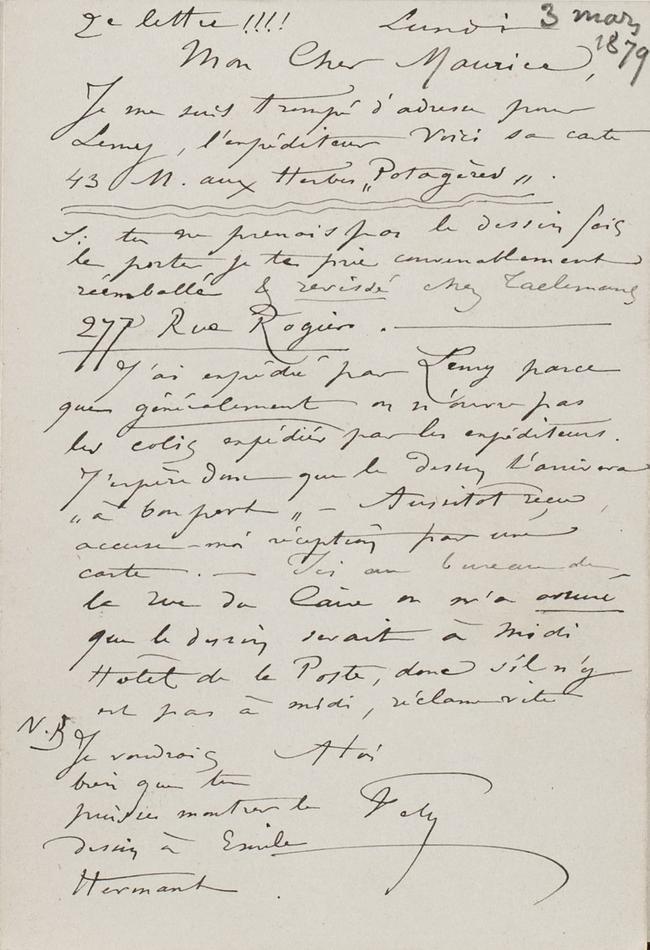 2e lettre !!!! Lundi 3 mars
1879
Mon Cher Maurice,
Je me suis trompé d'adresse pour
Lemy, l'expéditeur Voici sa carte
43 M. aux Herbes „Potagères„.
Si tu ne prenais pas le dessin fais
le porter je te prie convenablement
réemballé & revissé chez Taelemans
277 Rue Rogier. —
J'ai expédié par Lemy parce
que généralement on n'ouvre pas
les colis expédiés par les expéditeurs.
J'espère donc que le dessin t'arrivera
„à bon port„ — Aussitot reçu,
accuse-moi réception par une
carte. — Ici au bureau de
la rue du Caire on m'a assuré
que le dessin serait à midi
Hotêl de la Poste, donc s'il n'y
est pas à midi, réclame vite
N.B Je voudrais A toi
bien que tu
puisses montrer le Fély
dessin à Emile
Hermant.